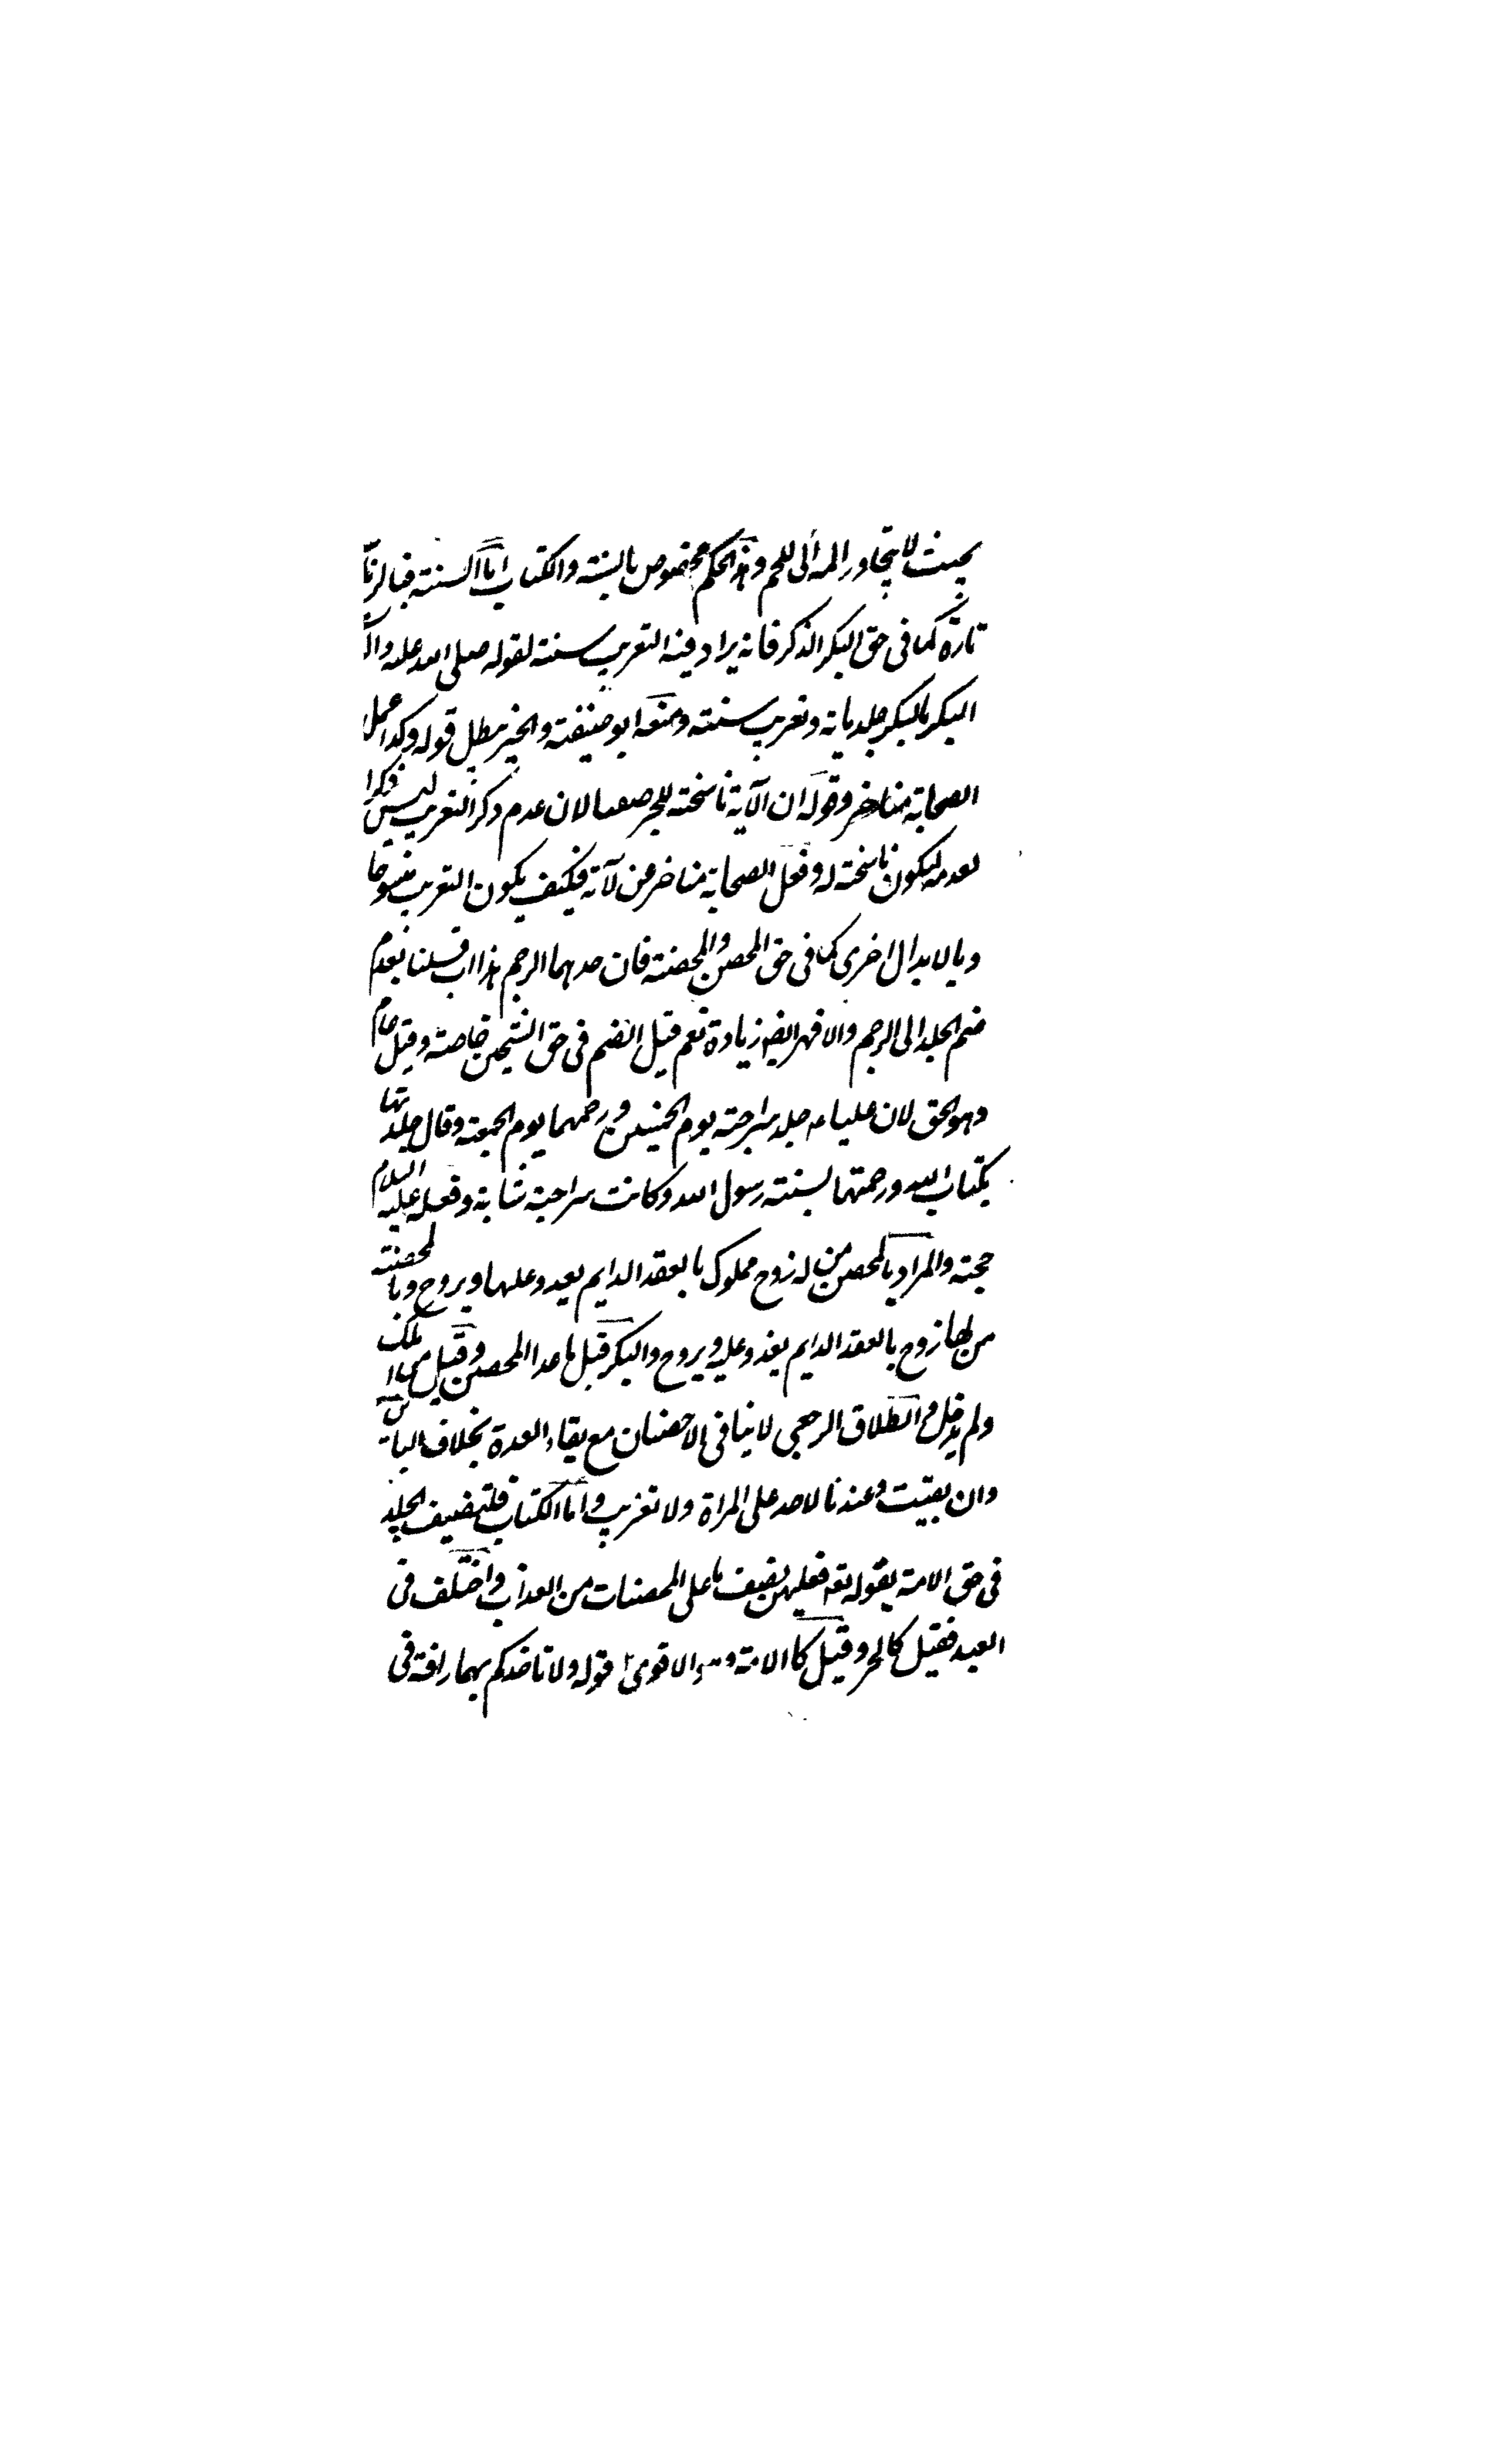 بحيث لا يتجاوز المه الى اللحم وهذا الحكم مخصوص بالسنة والكتاب اما السنة فبالزيا
تارة كما في حق البكر الذكر فانه يراد فيه التغريب سنة لقوله صلى الله عليه واله
البكر بالبكر جلد ماية وتغريب سنة ومنعه ابو حنيفة والخبر يبطل قوله وكذا عمل
الصحابة متاخر وقوله ان الآية ناسخة للخبر ضعيف لان عدم ذكر التغريب ليس ذكرا
لعدمه ليكون ناسخة له وفعل الصحابة متاخر عن الآية فكيف يكون التغريب منسوخا
وبالابدال اخرى كما في حق المحصن والمحصنة فان حدهما الرجم هذا ان قلنا بعدم
ضم الجلد الى الرجم والا فهو ايضا زيادة نعم قيل الضم في حق الشيخين خاصة وقيل عام
وهو الحق لان عليا ع جلد سراجة يوم الخميس ورجمها يوم الجمعة وقال جلدتها
بكتاب الله ورجمتها بسنة رسول الله وكانت سراجة شابة وفعله عليه السلام
حجة والمراد بالمحصن من له زوج مملوك بالعقد الدايم يغدو عليها ويروح وبالمحصنة
من لها زوج بالعقد الدايم يغدو عليه ويروح والبكر قيل ما عدا المحصن وقيل من املك
ولم يدخل و الطلاق الرجعي لا ينافي الاحصان مع بقاء العدة بخلاف الباين
وان بقيت وعندنا لا حد على المراة ولا تغريب واما الكتاب فلتنصيف الجلد
في حق الامة بقوله تع فعليهن نصف ما على المحصنات من العذاب واختلف في
العبد فقيل كالحر وقيل كالامة وهو الاقوى قوله ولا تاخذكم بهما رافة في